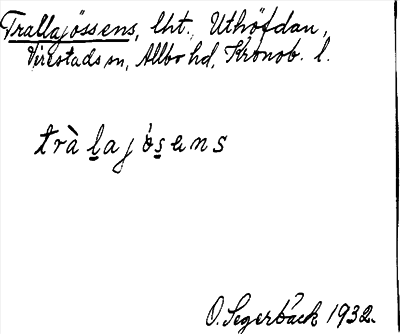 Trallajössens, lht., Uthöfdan,
Virestads sn, Allbo hd, Kronob. l.
tràl̲ajös̲ens
O. Segerbäck 1932.